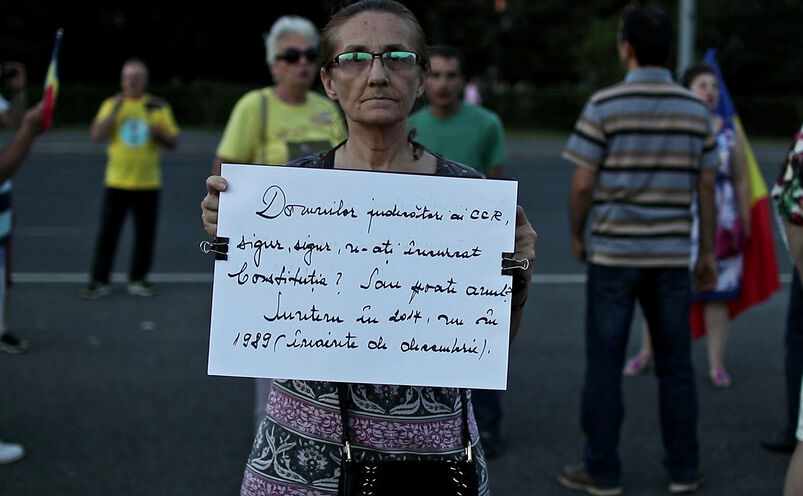 Domnilor judecători ai CCR,
sigur, sigur, n-ați încurcat
Constituția? Sau poate anul?
Suntem în 2014, nu în
1989 (înainte de decembrie).